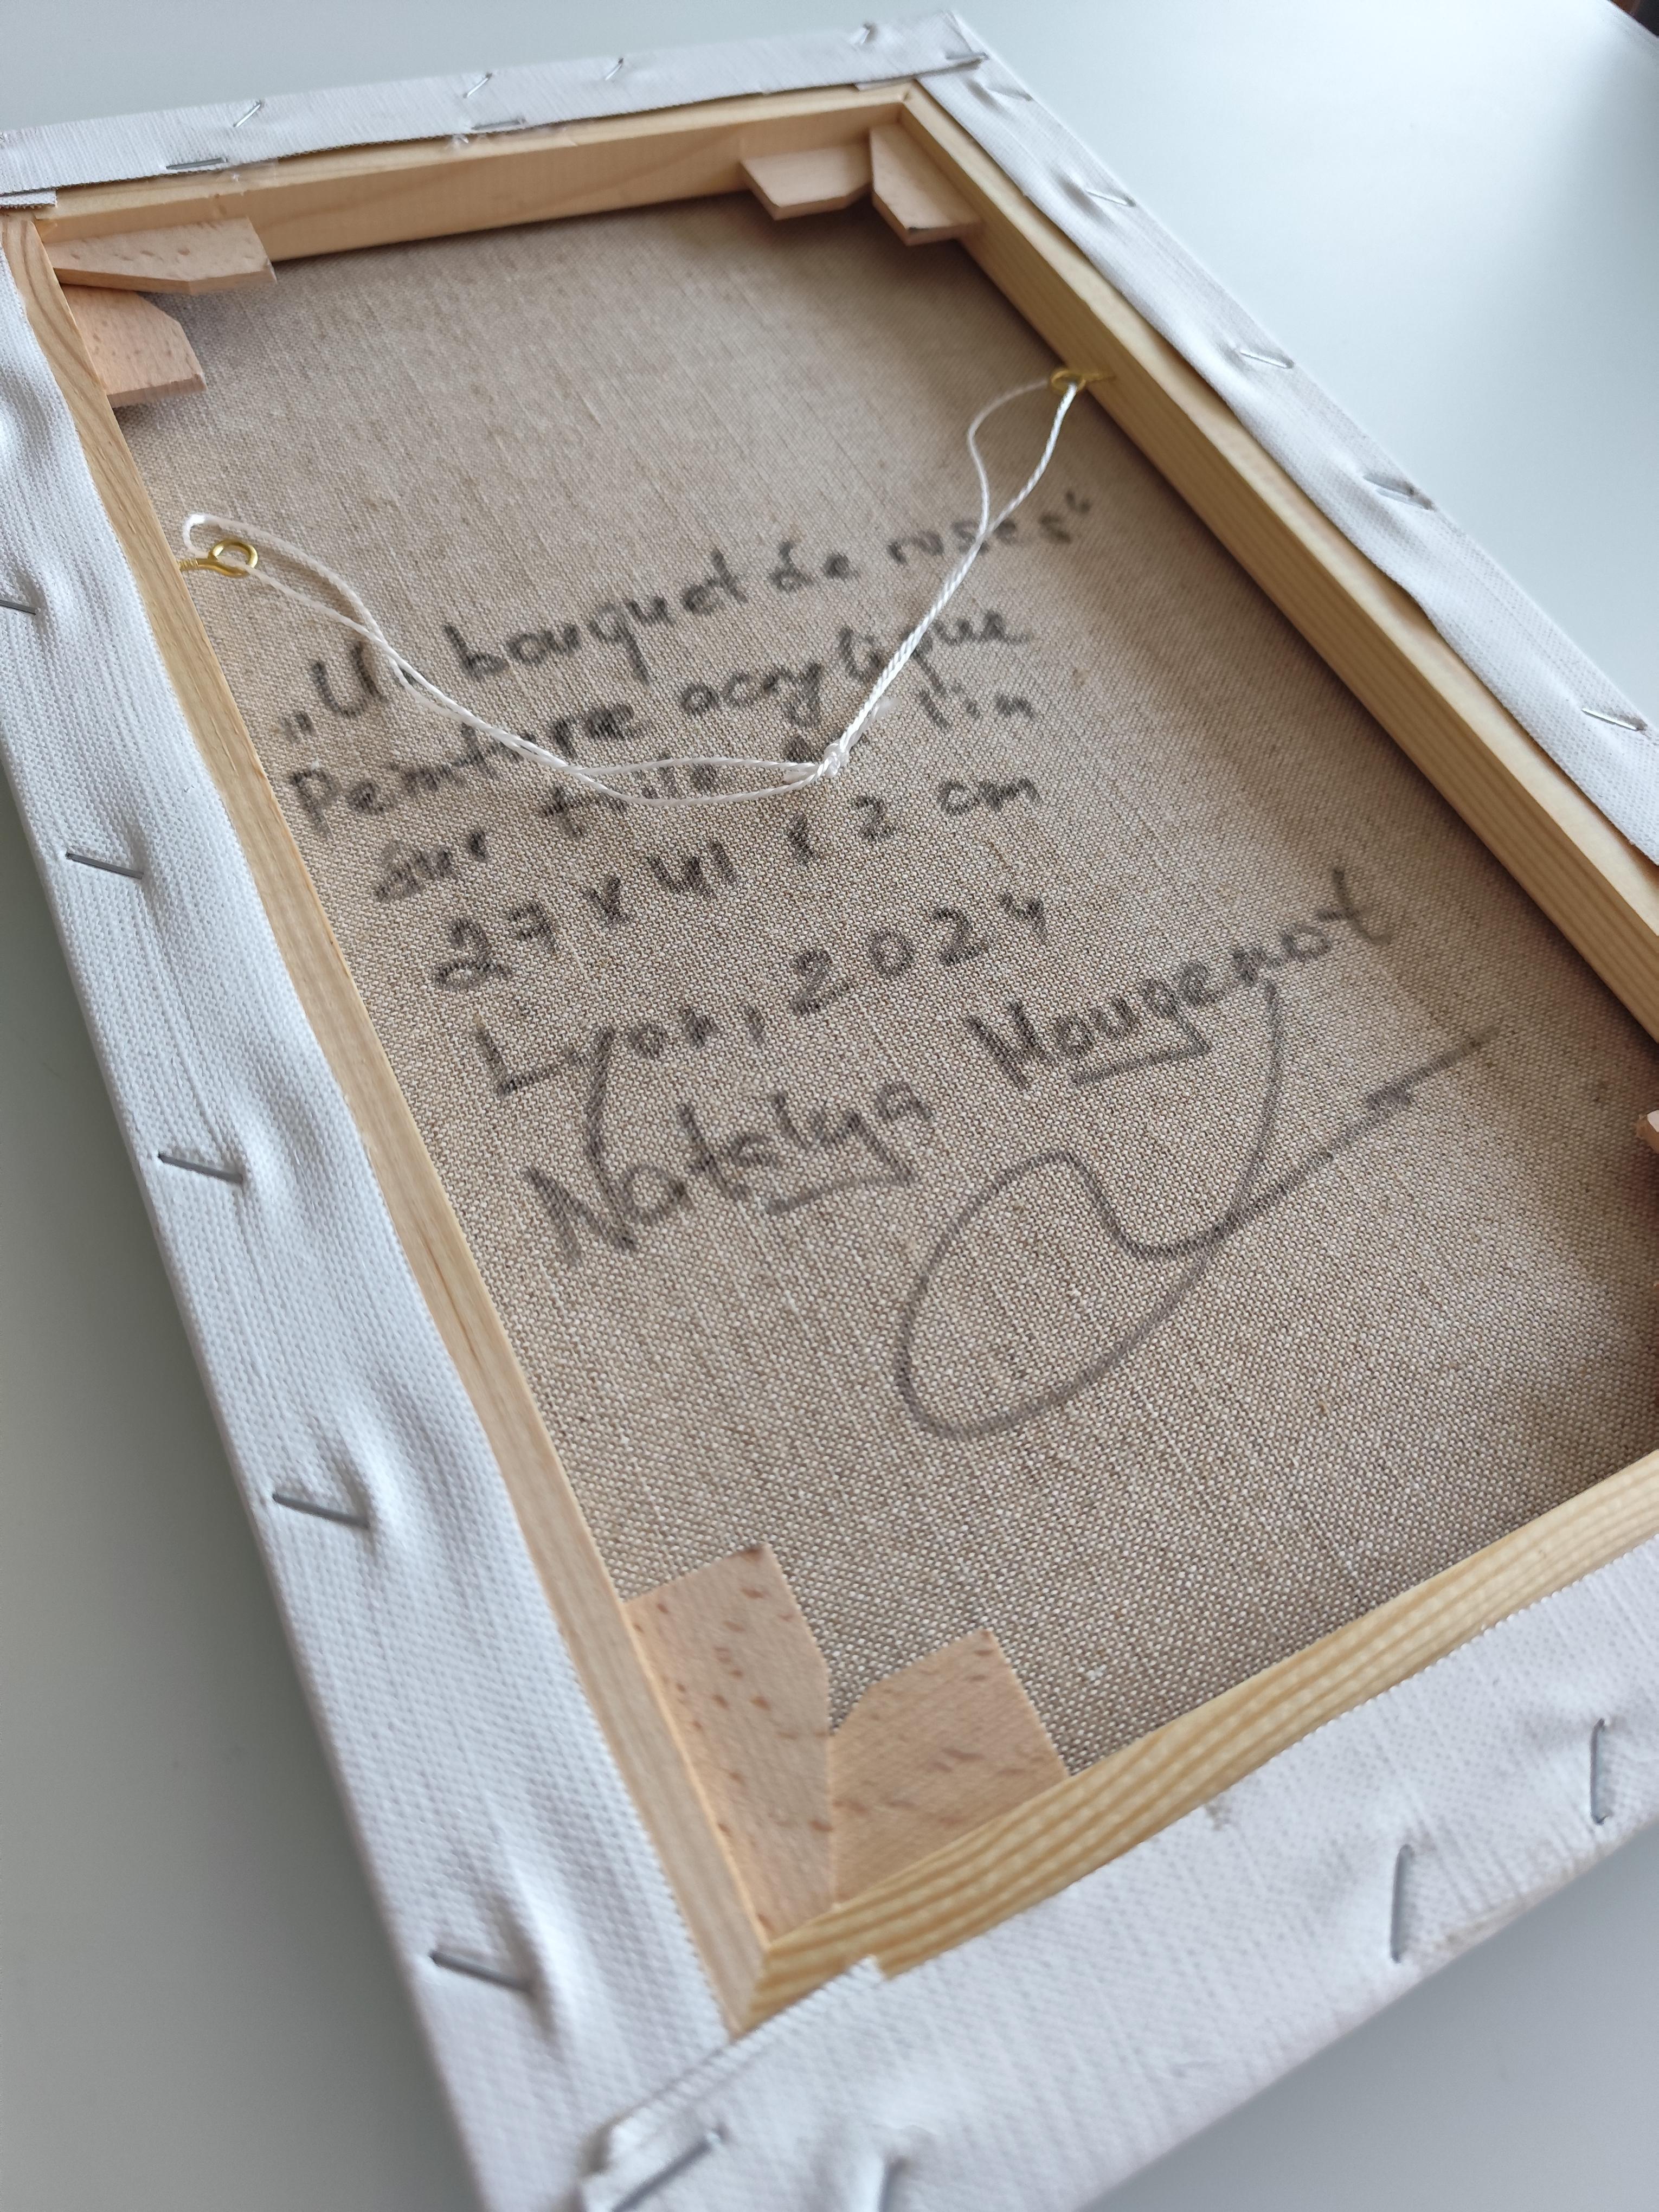 „Un bouquet de roses“
Peinture acrylique
sur toile de lin
27 x 41 x 2 cm
Lyon, 2024
Natalya Mougenot